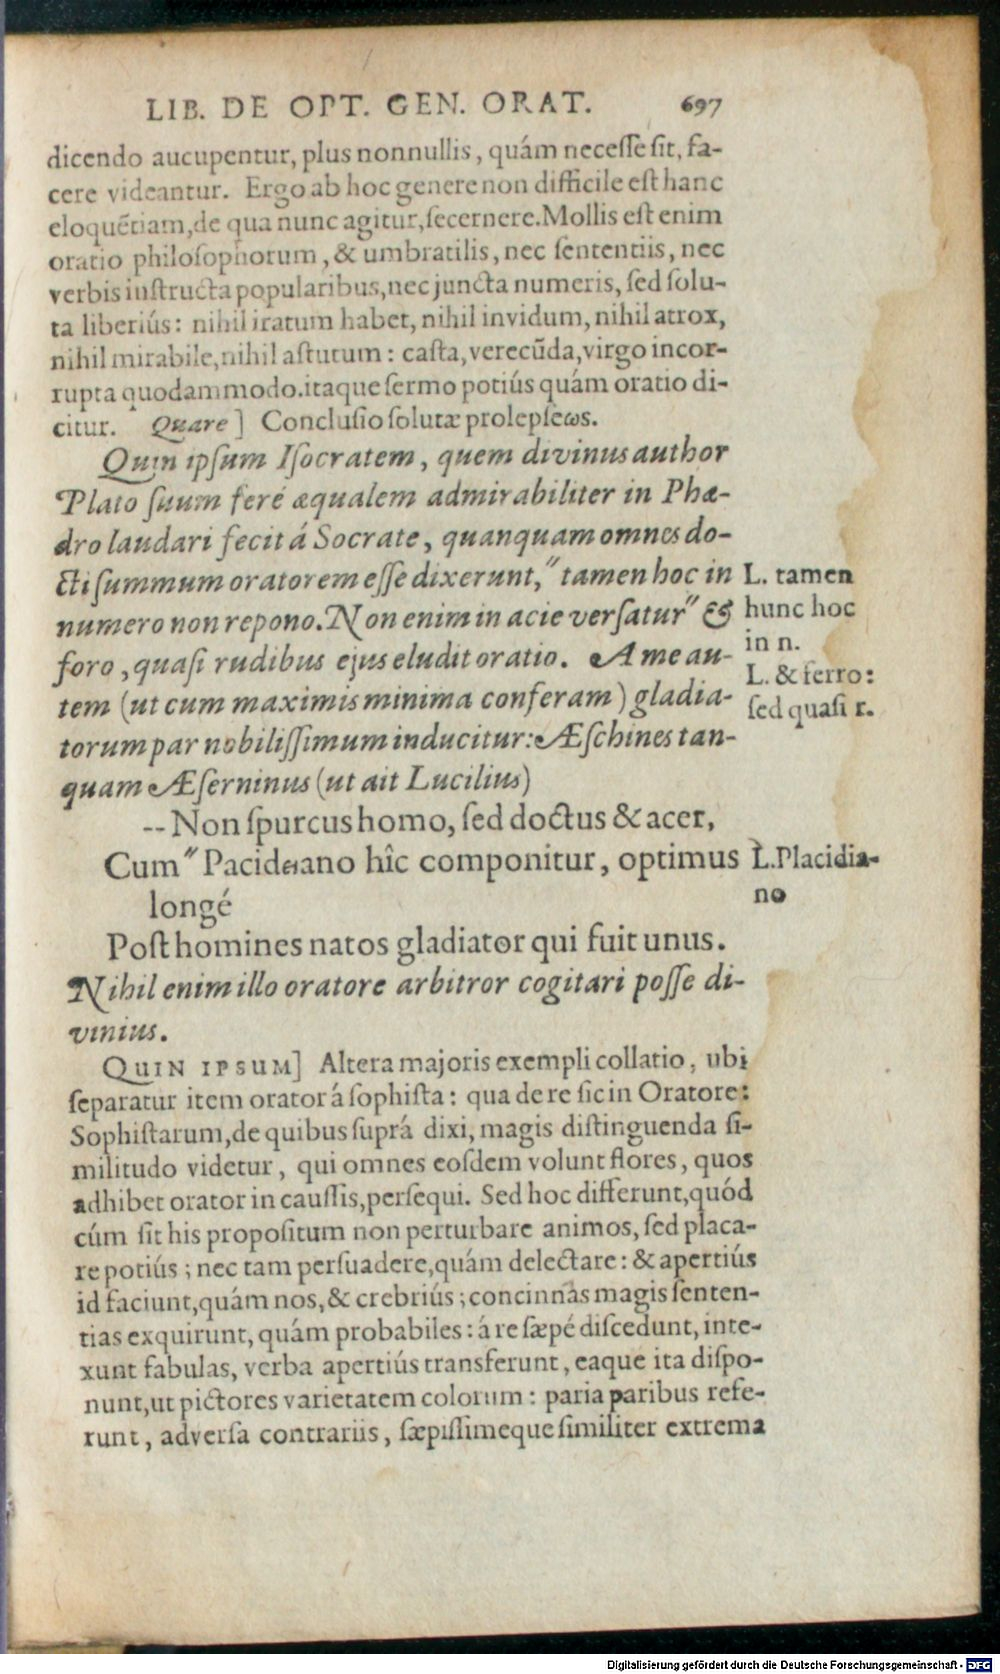 LIB. DE OPT. GEN. ORAT. 697
dicendo aucupentur, plus nonnullis, quám necesse sit, fa-
cere videantur. Ergo ab hoc genere non difficile est hanc
eloquẽtiam, de qua nunc agitur, secernere. Mollis est enim
oratio philosophorum, & umbratilis, nec sententiis, nec
verbis instructa popularibus, nec juncta numeris, sed solu-
ta liberiús: nihil iratum habet, nihil invidum, nihil atrox,
nihil mirabile, nihil astutum: casta, verecũda, virgo incor-
rupta quodammodo. itaque sermo potiús quám oratio di-
citur. Quare ] Conclusio solutæ prolepseως.
Quin ipsum Isocratem, quem divinus author
Plato suum feré æqualem admirabiliter in Phæ-
dro laudari fecit á Socrate, quanquam omnes do-
cti summum oratorem esse dixerunt, " tamen hoc in
numero non repono. Non enim in acie versatur " &
foro, quasi rudibus ejus eludit oratio. A me au-
tem (ut cum maximis minima conferam) gladia-
torum par nobilissimum inducitur: Æschines tan-
quam Æserninus (ut ait Lucilius)
L. tamen
hunc hoc
in n.
L. & ferro:
sed quasi r.
-- Non spurcus homo, sed doctus & acer,
Cum " Pacideiano hîc componitur, optimus
longé
L. Placidia-
no
Post homines natos gladiator qui fuit unus.
Nihil enim illo oratore arbitror cogitari posse di-
vinius.
QUIN IPSUM] Altera majoris exempli collatio, ubi
separatur item orator á sophista: qua de re sic in Oratore:
Sophistarum, de quibus suprá dixi, magis distinguenda si-
militudo videtur, qui omnes eosdem volunt flores, quos
adhibet orator in caussis, persequi. Sed hoc differunt, quód
cúm sit his propositum non perturbare animos, sed placa-
re potiús; nec tam persuadere, quám delectare: & apertiús
id faciunt, quám nos, & crebriús; concinnas magis senten-
tias exquirunt, quám probabiles: á re sæpé discedunt, inte-
xunt fabulas, verba apertiús transferunt, eaque ita dispo-
nunt, ut pictores varietatem colorum: paria paribus refe-
runt, adversa contrariis, sæpissimeque similiter extrema
Digitalisierung gefördert durch die Deutsche Forschungsgemeinschaft - DFG